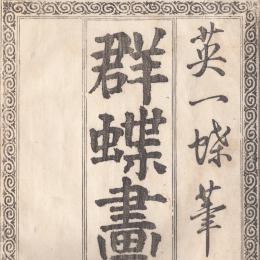 英一蝶筆
群蝶畫